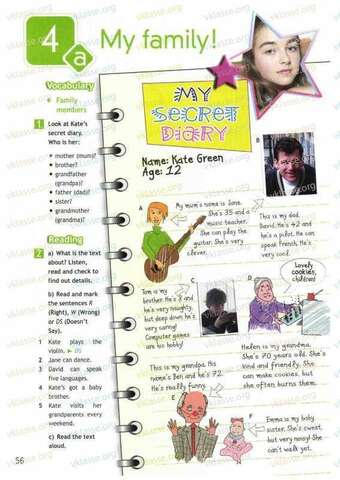 4 a
My family!
Vocabulary
Family
members
1 Look at Kate's
secret diary.
Who is her:
• mother (mum)?
• brother?
• grandfather
(grandpa)?
• father (dad)?
• sister?
• grandmother
(grandma)?
Reading
2 a) What is the text
about? Listen,
read and check to
find out details.
b) Read and mark
the sentences R
(Right), W (Wrong)
or DS (Doesn't
Say).
1 Kate plays the
violin.
DS
2 Jane can dance.
3 David can speak
five languages.
4 Kate's got a baby
brother.
5 Kate visits her
grandparents every
weekend.
c) Read the text
aloud.
56
MY
SECRET
DIARY
Name: Kate Green
Age: 12
A
My mum's name is Jane.
She's 35 and a
music teacher.
She can play the
guitar. She's very
clever.
B
This is my dad
David. He's 42 and
he's a pilot. He can
speak French. He's
very cool.
Tom is my
brother. He's 8 and
he's very naughty,
but deep down he's
very caring!
Computer games
are his hobby!
C
D
Lovely
cookies,
children!
Helen is my grandma.
She's 70 years old. She's
kind and friendly. She
can make cookies, but
she often burns them.
This is my grandpa. His
name's Ben and he's 72.
He's really funny.
E
F
Emma is my baby
sister. She's sweet,
but very noisy! She
can't walk yet.
vklasse.org